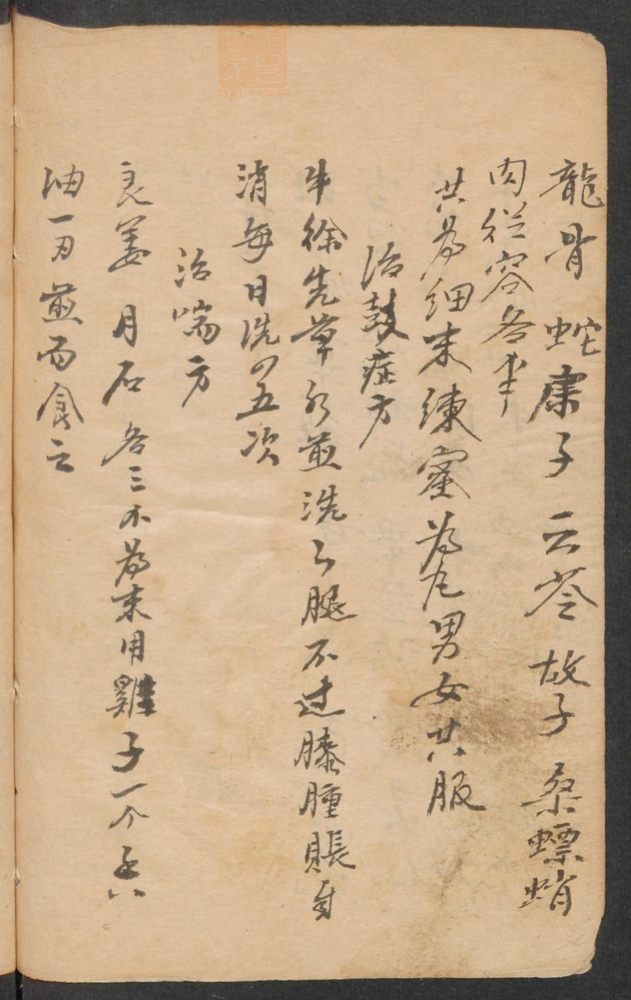 龍骨 蛇床子 云苓 故子 桑螵蛸
肉從容各半
共為細末練蜜為丸男女共服
治鼓症方
牛徐先草水煎洗之腿不过膝腫賬自
消每日洗四五次
治喘方
良姜 月石 各三 為末用雞子一个香
油一另煎而食之